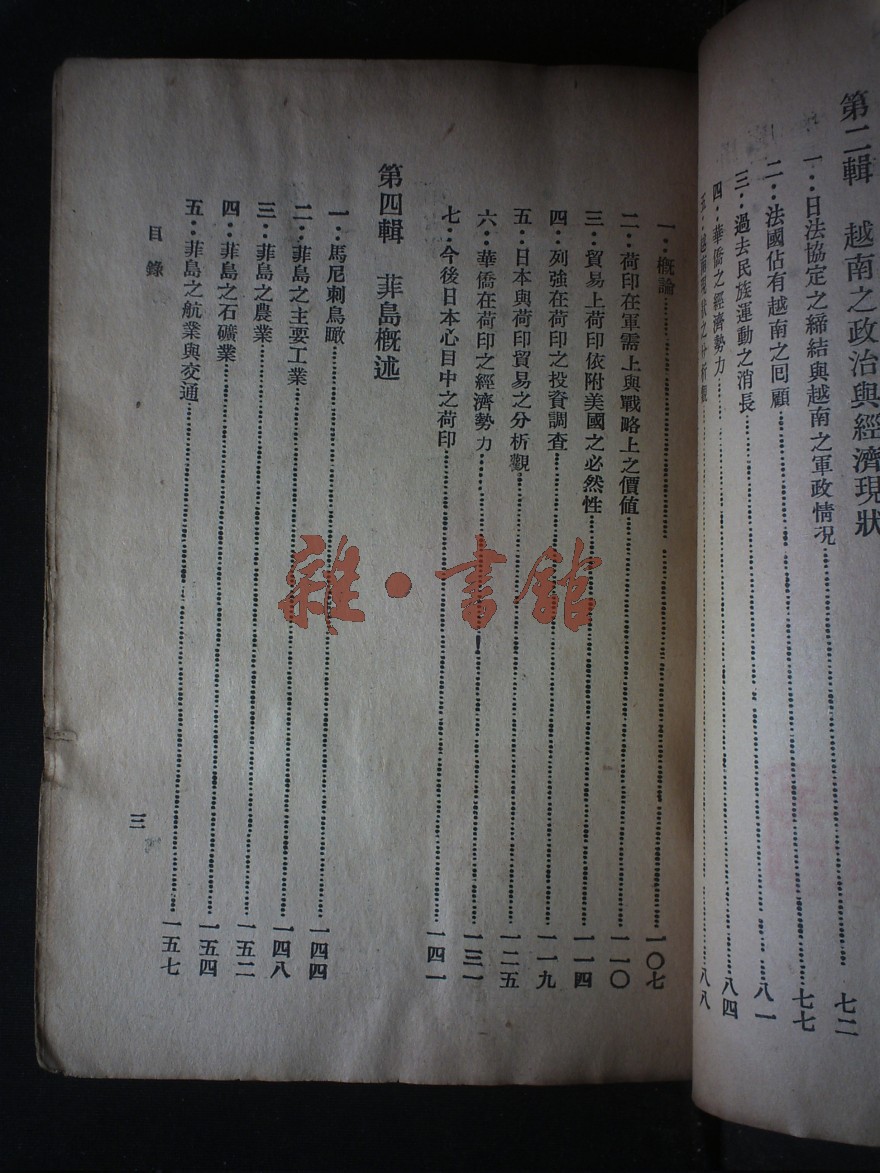 第二輯　越南之政治與經濟現狀
一：日法協定之締結與越南之軍政情況……七二
二：法國佔有越南之回顧……七七
三：過去民族運動之消長……八一
四：華僑之經濟勢力……八四
五：越南現狀之分析觀……八八
一：概論……一〇七
二：荷印在軍需上與戰略上之價値……一一〇
三：貿易上荷印依附美國之必然性……一一四
四：列強在荷印之投資調查……一一九
五：日本與荷印貿易之分析觀……一二五
六：華僑在荷印之經濟勢力……一三一
七：今後日本心目中之荷印……一四一
第四輯　菲島槪述
一：馬尼剌鳥瞰……一四四
二：菲島之主要工業……一四八
三：菲島之農業……一五二
四：菲島之石礦業……一五四
五：菲島之航業與交通……一五七
目錄
三
雜·書館